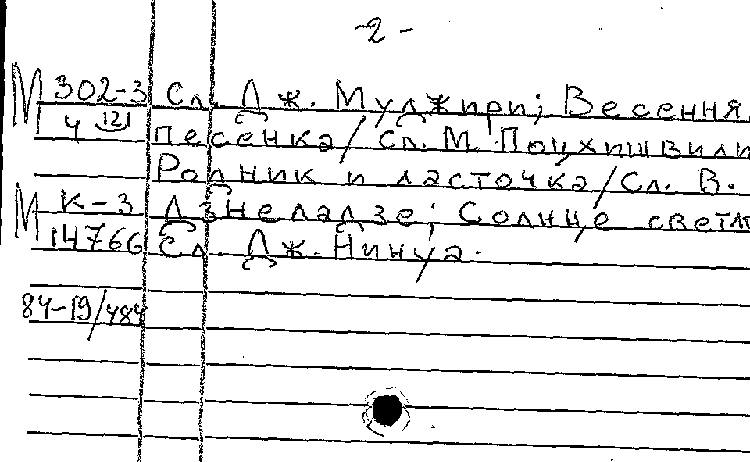 -2-
М 302-3 Сл. Дж. Мулжири; Весення
4 121 песенка/ Сл. М. Поцхишвили
Родник и ласточка/Сл. В.
М К-3 Дзнеладзе; Солнце светл
14766 Сл. Дж. Нинуа.
84-19/484